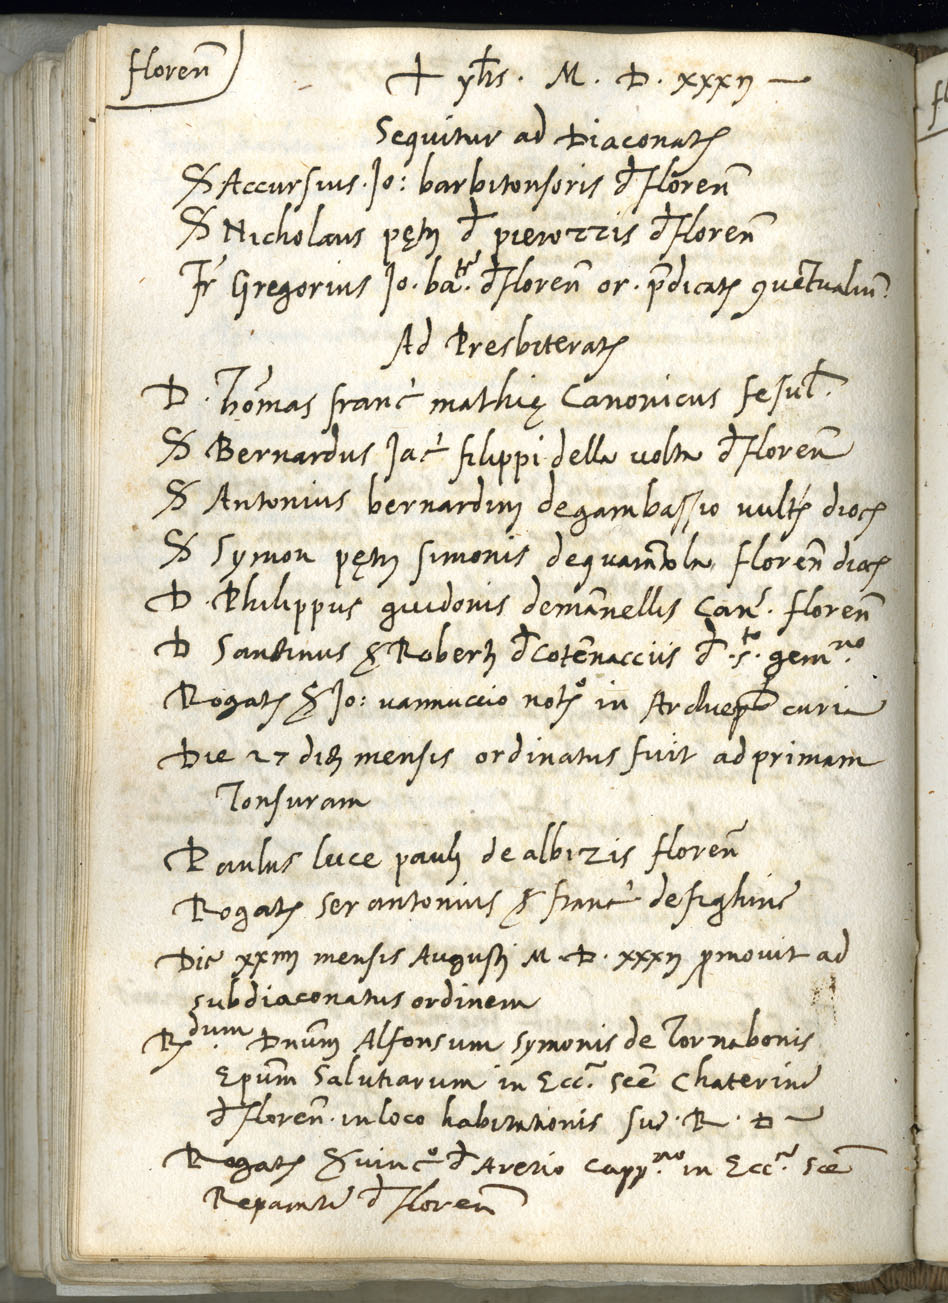 floren̄
+ yħs · M · D · xxxij —
Sequitur ad Diaconatꝫ
S Accursius · Jo: barbitonsoris đ floren̄
S Nicholaus pętrj đ pierozzis đ floren̄
fr̄ Gregorius Jo · batᵃ · đ floren̄ or · p̄dicatꝫ ꝯuētualiū
Ad Presbiteratꝫ
D · Thomas franc̄ mathię Canonicus fesul̄ ·
S Bernardus Jac̄ filippi della volta đ floren̄
S Antonius bernardinj de gambassio vultꝫ diocꝫ
S Symon pętrj simonis de floren̄ diocꝫ
D · Philippus guidonis demānellis Can̄ · floren̄
D Sandinus S Robertj đ cotēnacciis đ · sᵗᵒ · gemⁿᵒ ·
Rogatꝫ S Jo: vannuccio notꝫº in Archiep̄ curia
Die 27 dictj mensis ordinatus fuit ad primam
Tonsuram
Paulus luce paulj de albizis floren̄
Rogatꝫ ser antonius S franc̄ de fighine
Die xxiiij mensis Augustj M · D · xxxij ꝓmovit ad
subdiaconatus ordinem
Rᵈᵘᵐ · Dnūm Alfonsum symonis de Tornabonis
Epūm Salutiarum in Ecc̄ · scē Chaterine
đ floren̄ · in loco habitationis sue · R · D —
Rogatꝫ S vincº đ Aretio cappⁿᵒ · in Ecc̄ · scē
Reparate đ floren̄